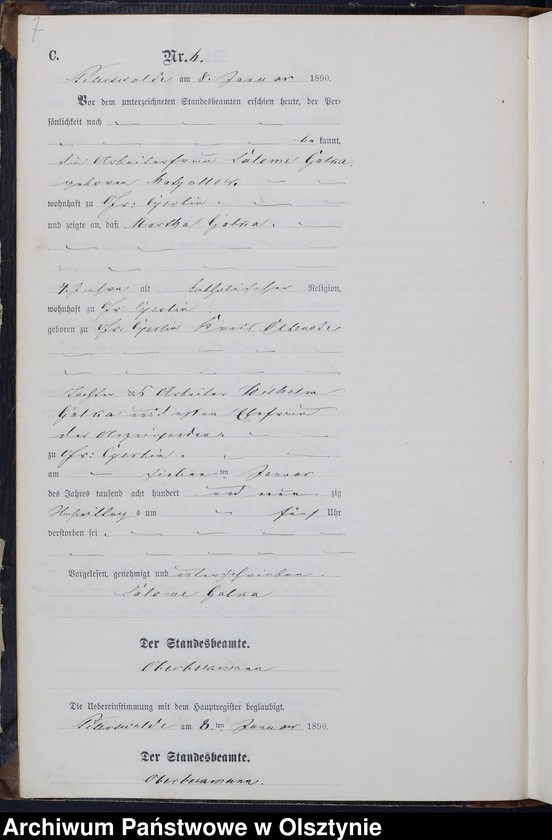 7
C.
Nr. 6.
am 8. Januar 1890.
Vor dem unterzeichneten Standesbeamten erschien heute, der Per-
sönlichkeit nach
be kannt,
die Arbeiterfrau Salome Galka
geboren
wohnhaft zu Gr:
und zeigte an, daß Martha Galka
4 Jahre alt katholischer Religion,
wohnhaft zu Gr
geboren zu Gr: Kreis Osterode
Tochter des Arbeiter Wilhelm
Galka und Ehefrau
der Anzeigenden
zu Gr:
am sieben ten Januar
des Jahres tausend acht hundert und neun zig
Nachmittags um fünf Uhr
verstorben sei
Vorgelesen, genehmigt und unterschrieben
Salome Galka
Der Standesbeamte.
Die Uebereinstimmung mit dem Hauptregister beglaubigt.
am 8. ten Januar 1890.
Der Standesbeamte.
Archiwum Państwowe w Olsztynie